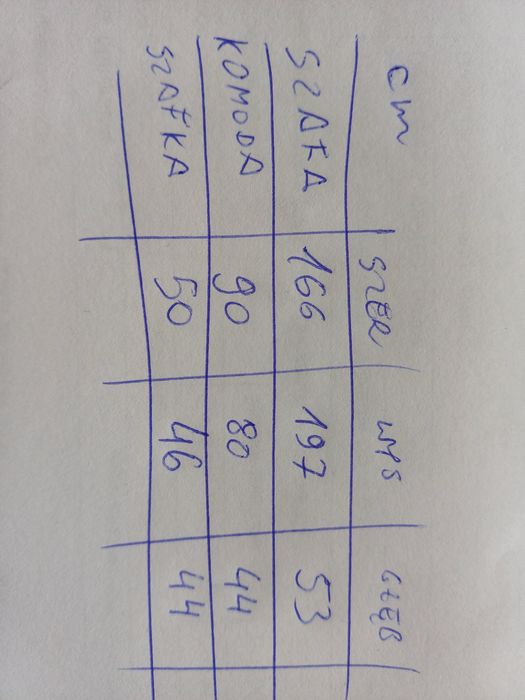 cm SZER WYS GŁĘB
SZAFA 166 197 53
KOMODA 90 80 44
SZAFKA 50 46 44